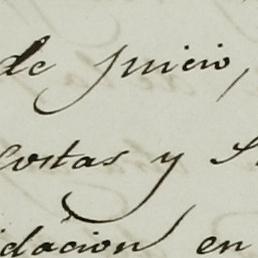 de juicio,
costas y
idacion en